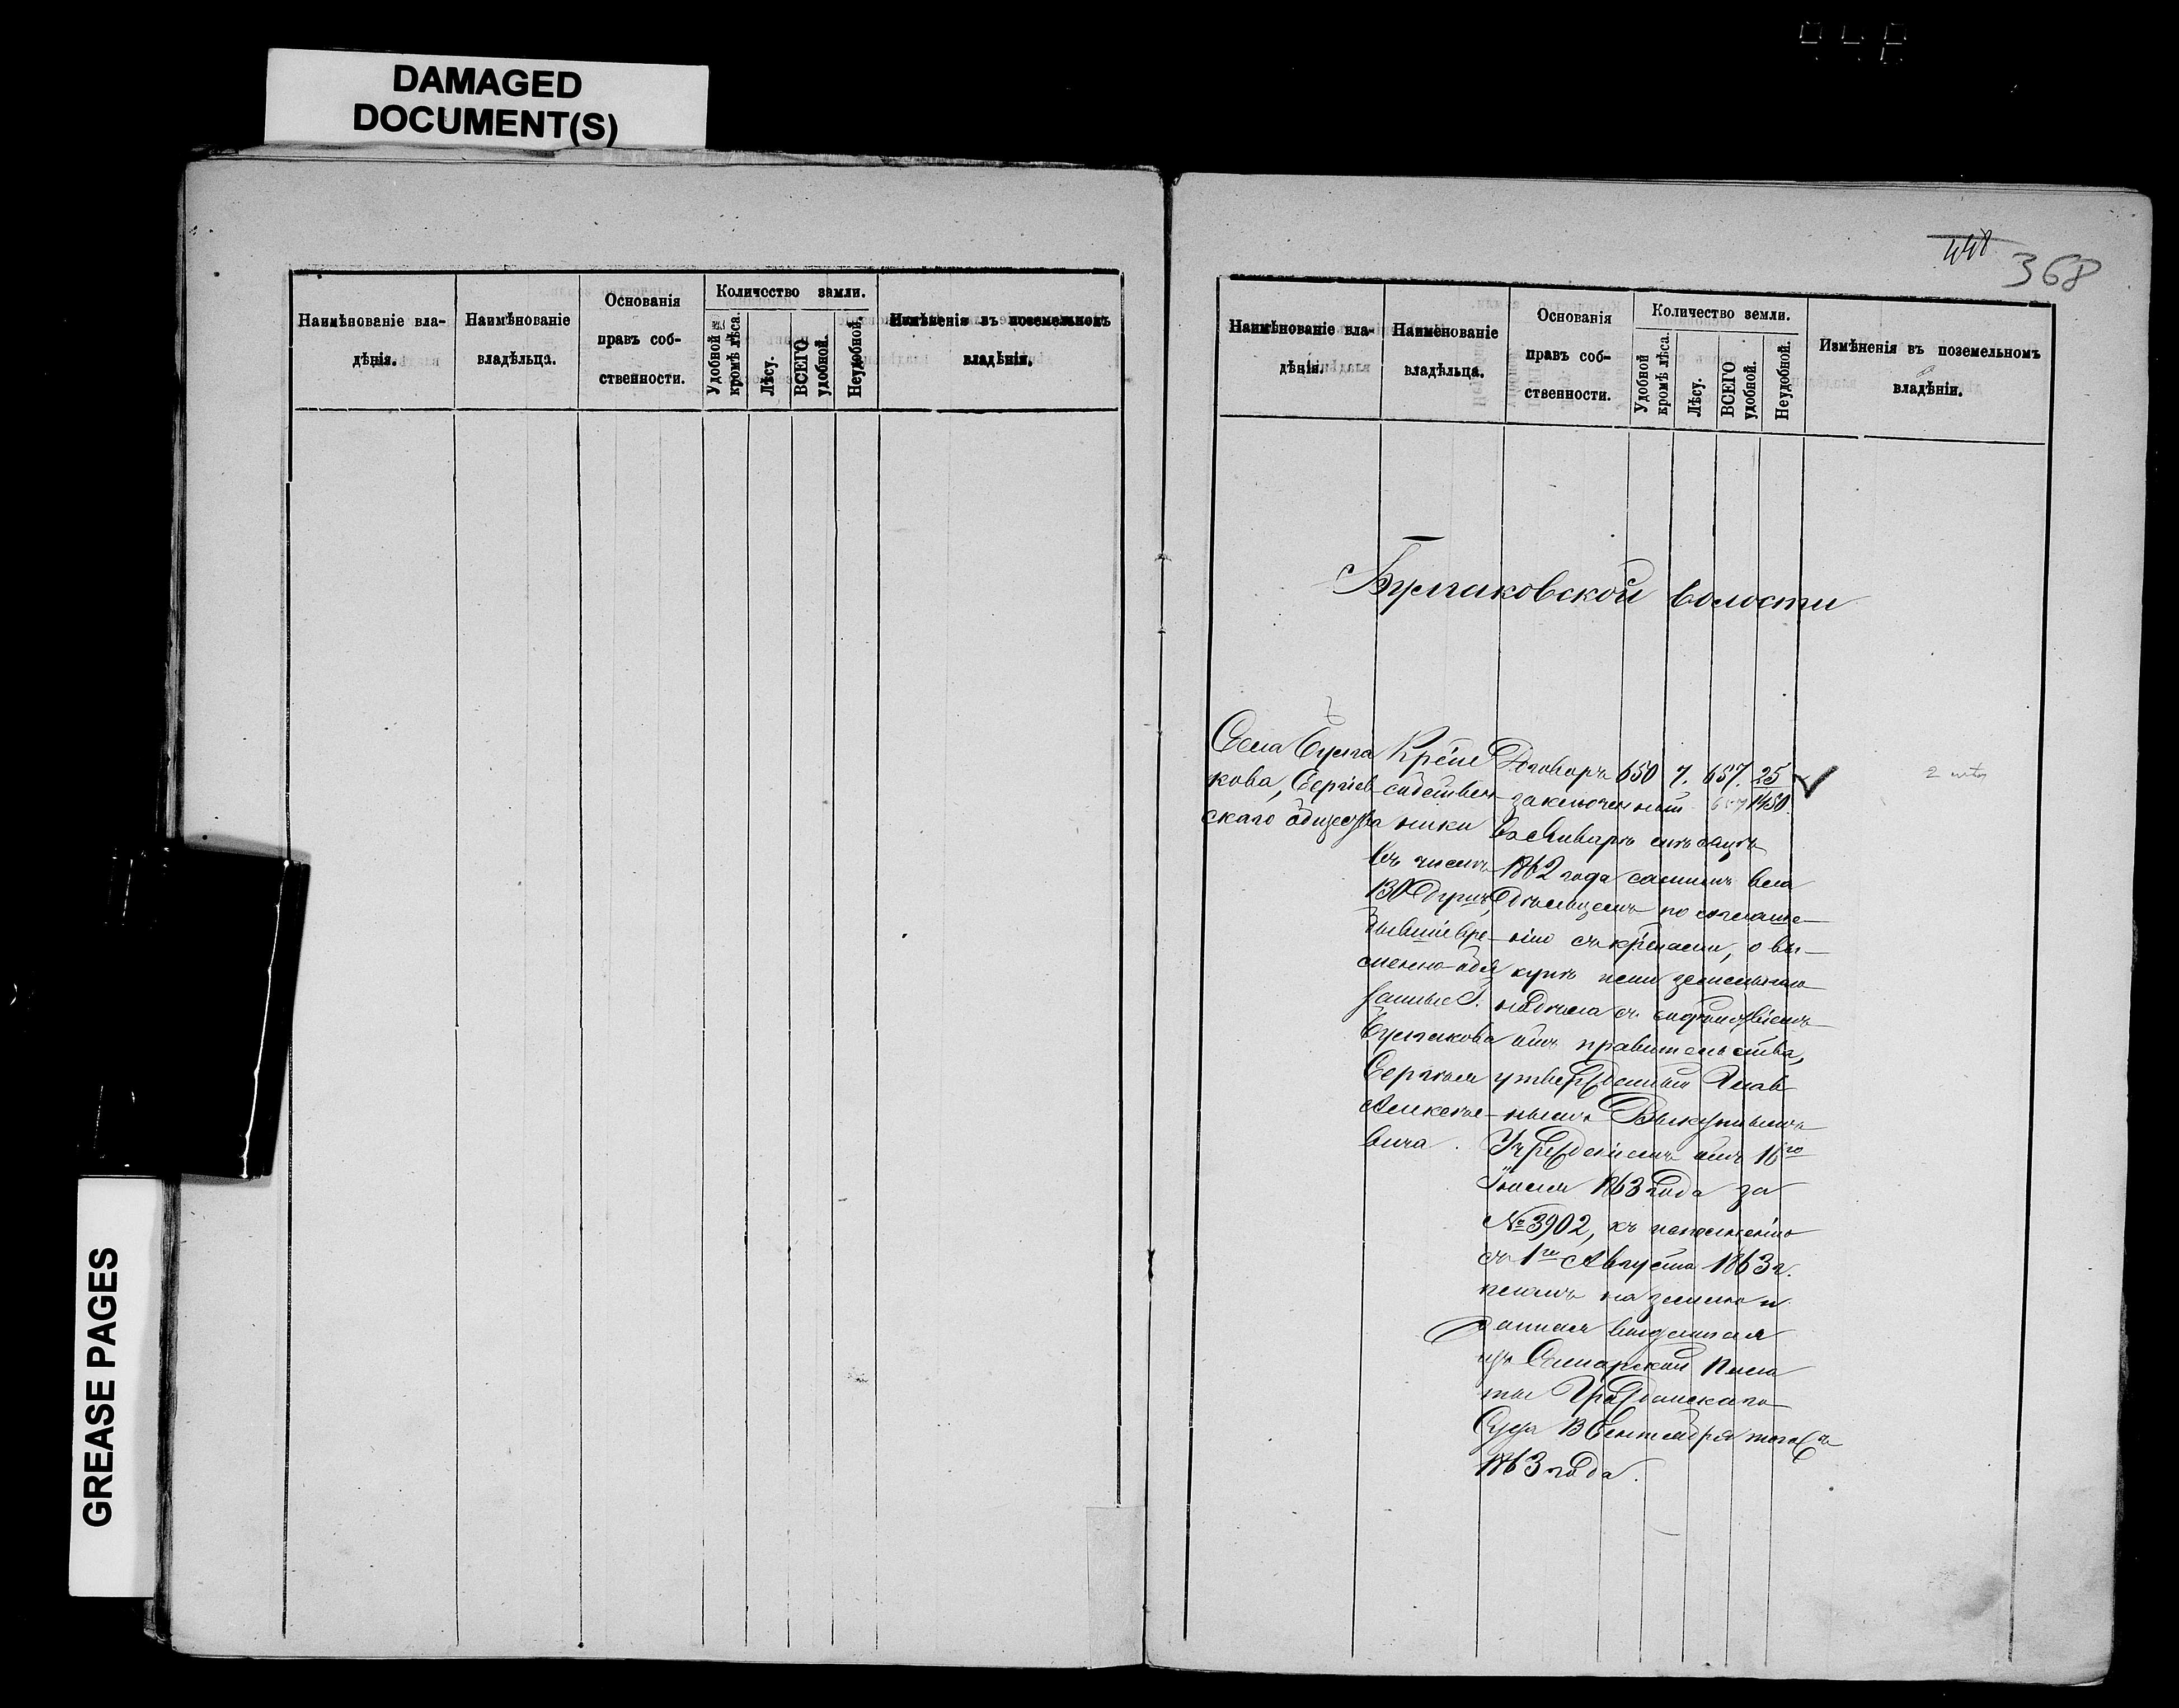 DAMAGED
DOCUMENT(S)
GREASE PAGES
Наимѣнованіе вла-
дѣнія.
Наимѣнованіе
владѣльца.
Основанія
правъ соб-
ственности.
Количество земли.
Удобной
кромѣ лѣса.
Лѣсу.
ВСЕГО
удобной.
Неудобной.
Измѣненія въ поземельномъ
владѣніи.
448
368
Наимѣнованіе вла-
дѣнія.
Наименованіе
владѣльца.
Основанія
правъ соб-
ственности.
Количество земли.
Удобной
кромѣ лѣса.
Лѣсу.
ВСЕГО
удобной.
Неудобной.
Измѣненія въ поземельномъ
владѣніи.
Булгаковской волости
Села Булга
кова, Сергіев
скаго общества
Крѣие
собствен-
ники
въ числѣ
130 душъ,
бывшіе вре-
менно-обя
занные Г.
Булгакова
Сергѣя
Алексѣе-
вича.
Договоръ
заключенный
въ Январѣ мѣсяцѣ
1862 года самимъ вла
дѣльцемъ по соглаше-
нію съ крѣнами, о вы-
купѣ ими земельнаго
надѣла съ содѣйствіемъ
отъ правительства,
утвержденный Глав
нымъ Выкупнымъ
Учрежденіемъ отъ 16го
Іюля 1863 года за
№ 3902, къ исполненію
съ 1го Августа 1863 г.
планъ на землю и
данная выданная
изъ Самарской Пала
ты Гражданскаго
Суда 13 Сентября тогожъ
1863 года.
650 7. 657. 25
657 1480.
2